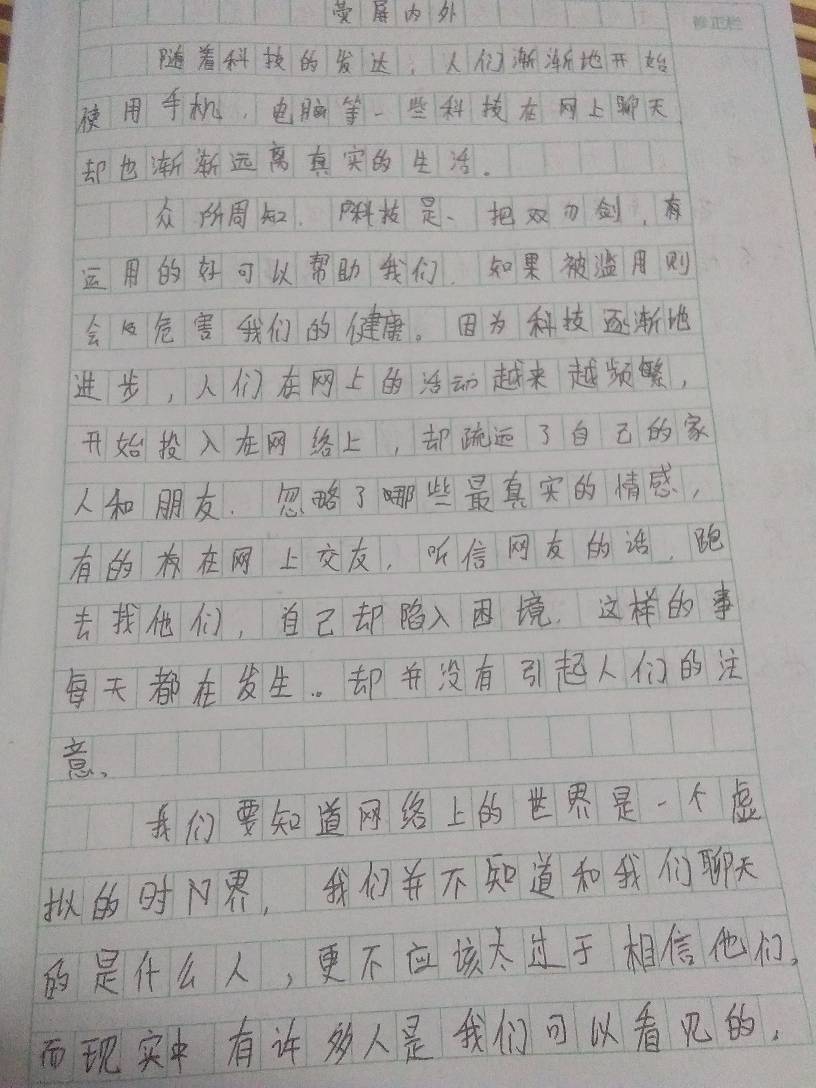 荧屏内外
修正栏
随着科技的发达，人们渐渐地开始
使用手机，电脑等一些科技在网上聊天
却也渐渐远离真实的生活。
众所周知，科技是一把双刃剑，
运用的好可以帮助我们，如果被滥用则
会危害我们的健康。因为科技逐渐地
进步，人们在网上的活动越来越频繁，
开始投入在网络上，却疏远了自己的家
人和朋友，忽略了哪些最真实的情感，
有的在网上交友，听信网友的话，跑
去找他们，自己却陷入困境，这样的事
每天都在发生。却并没有引起人们的注
意、
我们要知道网络上的世界是一个虚
拟的时界，我们并不知道和我们聊天
的是什么人，更不应该太过于相信他们，
而现实中有许多人是我们可以看见的，